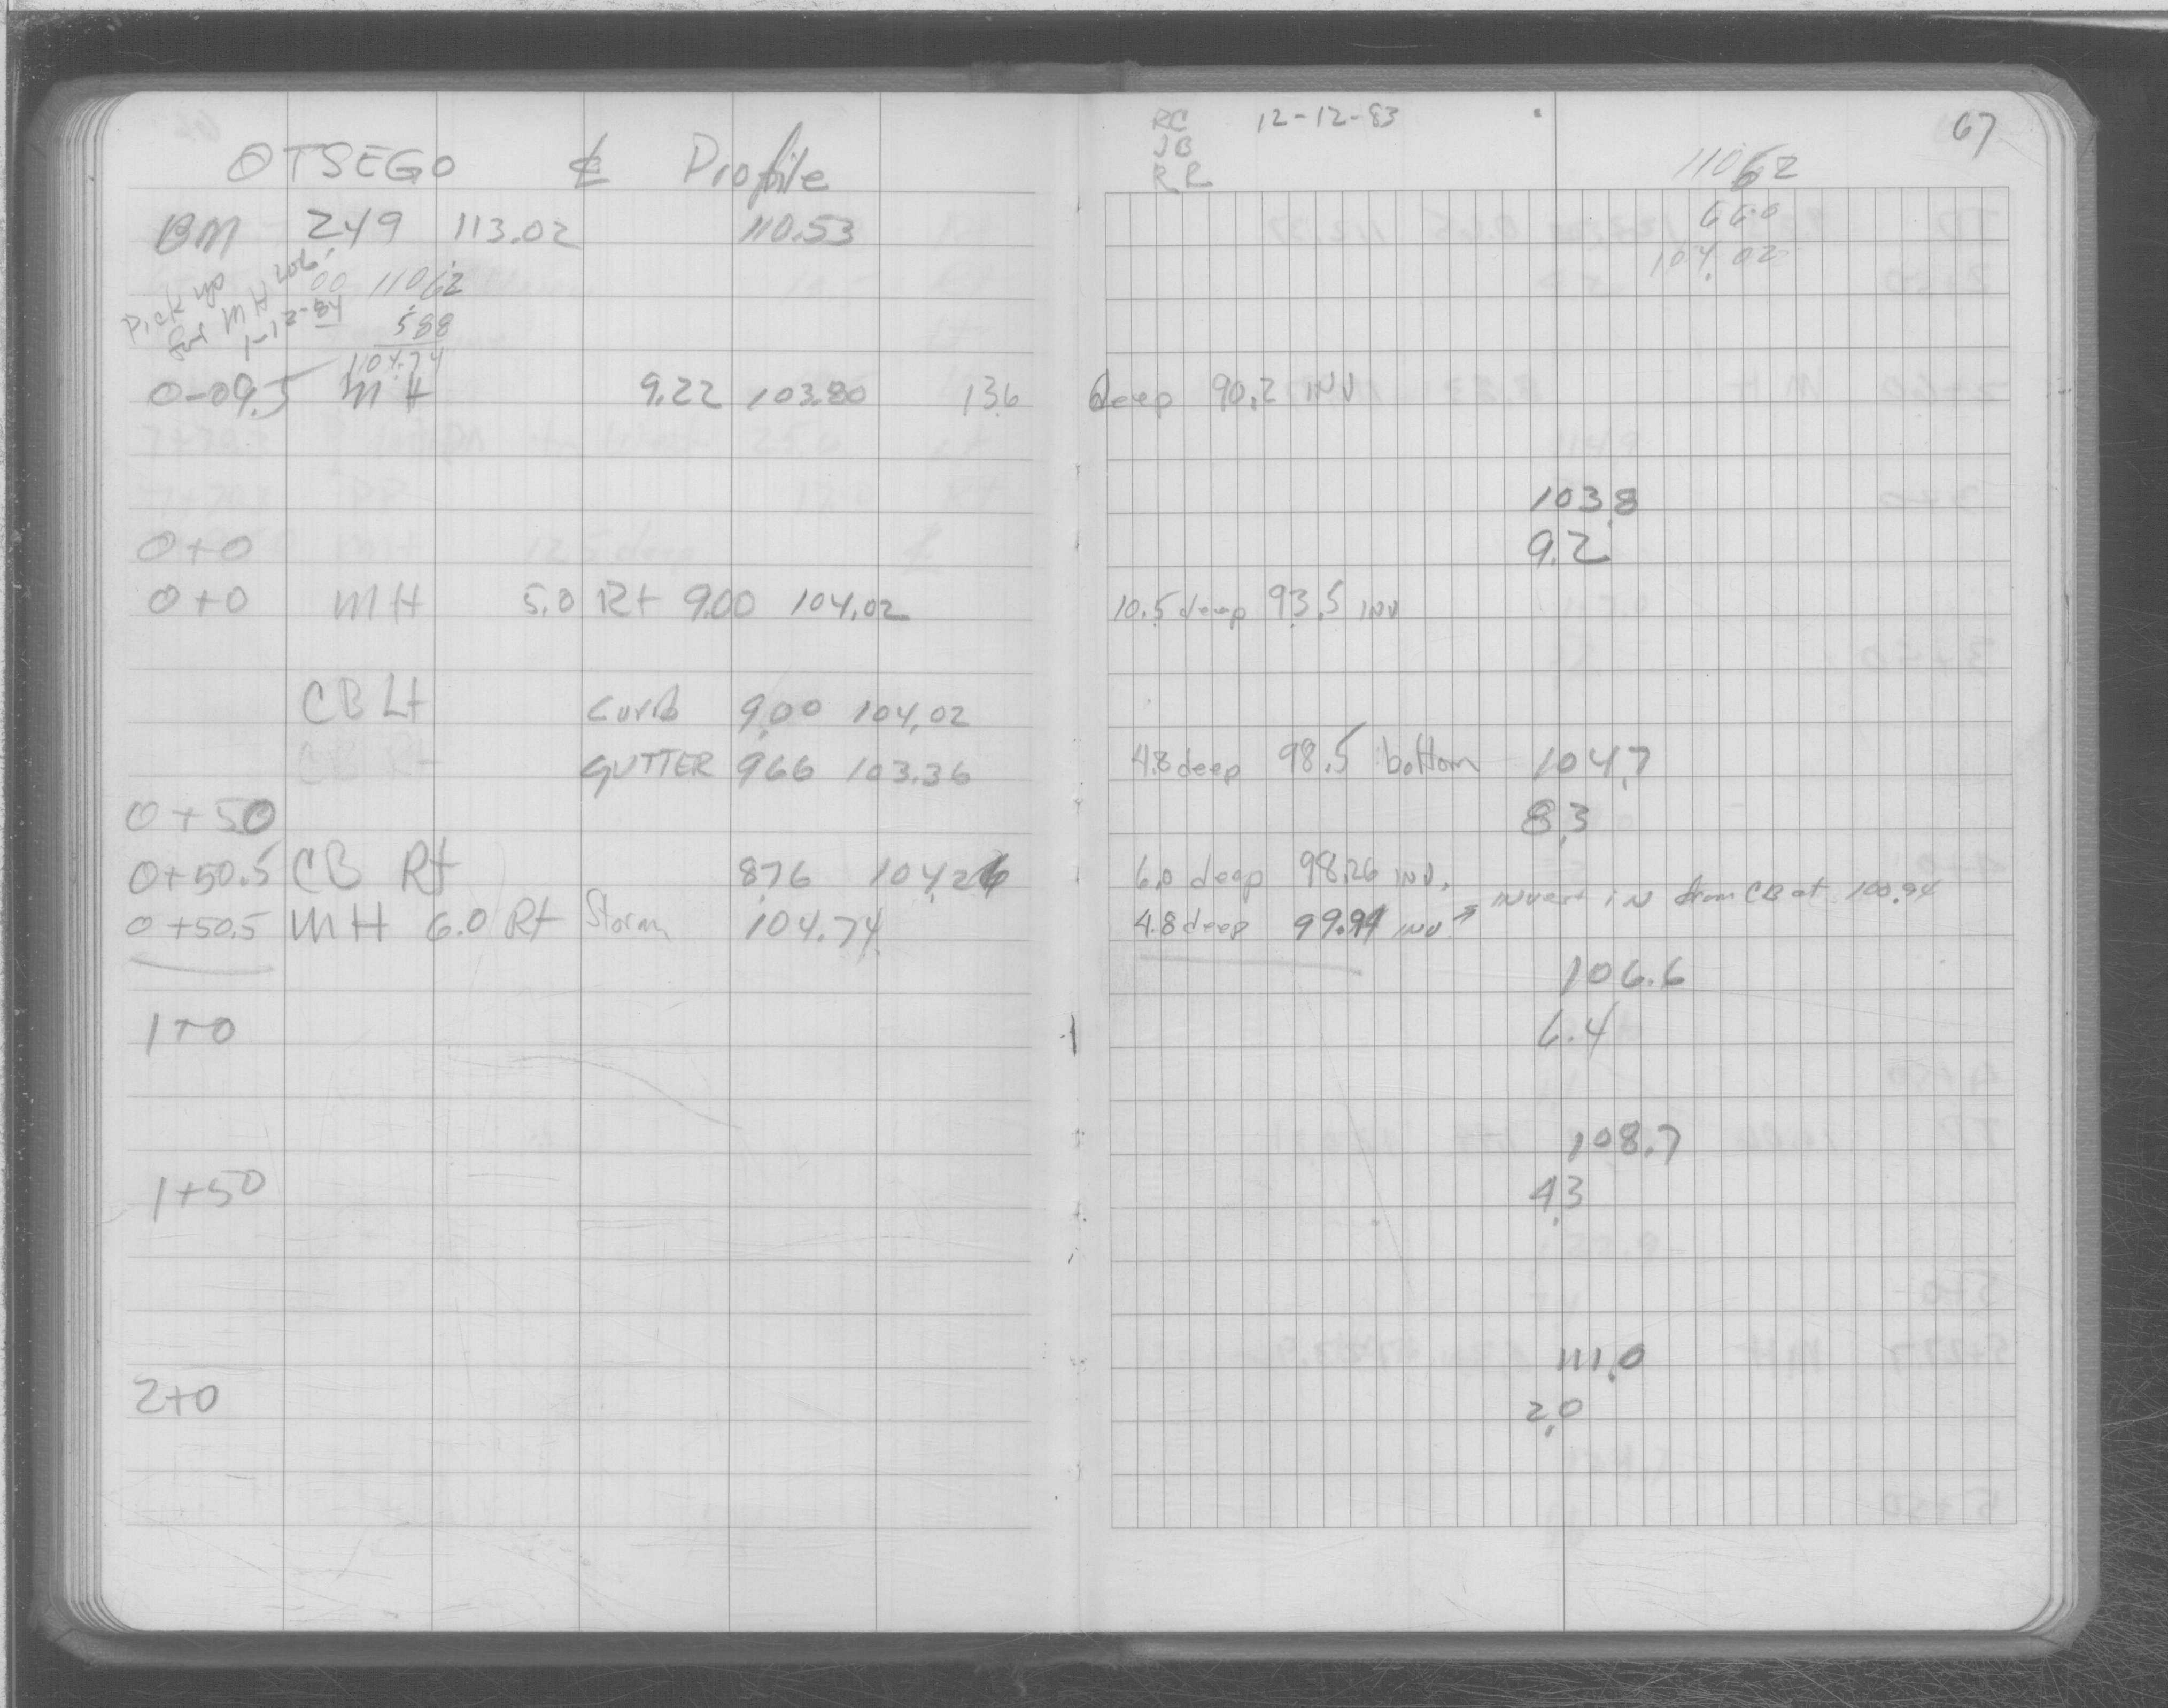 OTSEGO ⅊ Profile
BM 2.49 113.02 110.53
Pick up
for MH 206
1-12-84
00 110.62
5.88
104.74
0-09.5 MH 9.22 103.80 13.6
0+0
0+0 MH 5.0 Rt 9.00 104.02
CB Lt Curb 9.00 104.02
CB Rt GUTTER 966 103.36
0+50
0+50.5 CB Rt 876 104.26
0+50.5 MH 6.0 Rt Storm 104.74
1+0
1+50
2+0
RC 12-12-83
JB
RR
67
110.62
6.60
104.02
Deep 90.2 INV
103.8
9.2
10.5 deep 93.5 INV
4.8 deep 98.5 bottom 104.7
8.3
6.0 deep 98.26 INV.
INVert iN from CB at 100.94
4.8 deep 99.94 INV
106.6
6.4
108.7
4.3
111.0
2.0